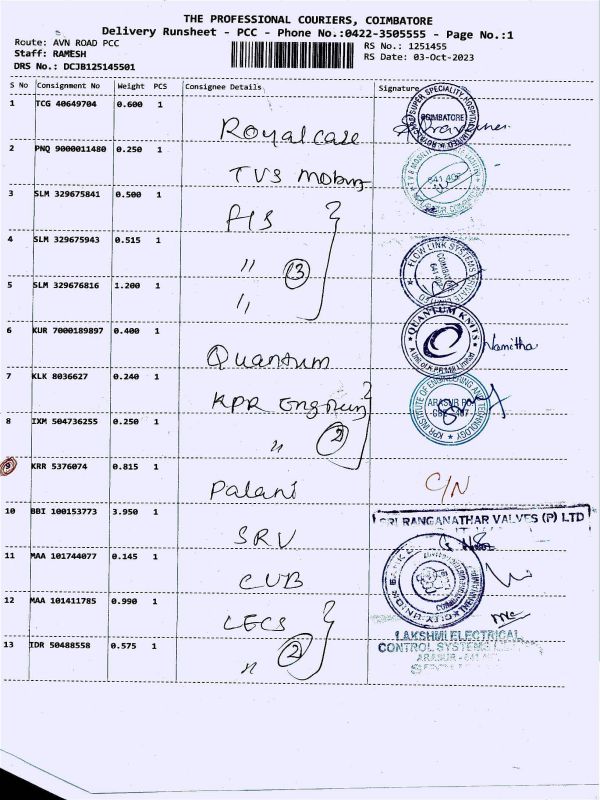 THE PROFESSIONAL COURIERS, COIMBATORE
Delivery Runsheet - PCC - Phone No.:0422-3505555 - Page No.:1
Route: AVN ROAD PCC
RS No.: 1251455
Staff: RAMESH
RS Date: 03-Oct-2023
DRS No.: DCJB125145501
S No Consignment No Weight PCS Consignee Details Signature
1 TCG 40649704 0.600 1
Royalcare
COIMBATORE
2 PNQ 9000011480 0.250 1
TVS Mobility
641 407
3 SLM 329675841 0.500 1
FLS
4 SLM 329675943 0.515 1
" 3
FLOW LINK SYSTEMS PRIVATE LIMITED
COIMBATORE
5 SLM 329676816 1.200 1
"
6 KUR 7000189897 0.400 1
Quantum
QUANTUM KNITS
A Unit of K.P.R. Mill Limited
Namitha
7 KLK 8036627 0.240 1
KPR Engineering
KPR INSTITUTE OF ENGINEERING AND TECHNOLOGY
ARASUR PO
8 IXM 504736255 0.250 1
" 2
9 KRR 5376074 0.815 1
Palani
C/N
10 BBI 100153773 3.950 1
SRV
SRI RANGANATHAR VALVES (P) LTD
11 MAA 101744077 0.145 1
CUB
12 MAA 101411785 0.990 1
LECS
LAKSHMI ELECTRICAL
CONTROL SYSTEMS LIMITED
13 IDR 50488558 0.575 1
" 2